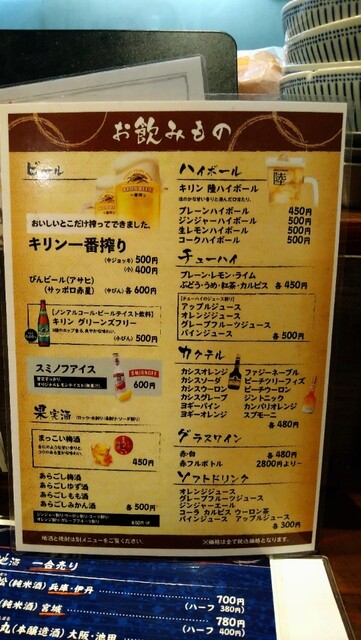 お飲みもの
ビール
おいしいとこだけ搾ってできました。
キリン一番搾り
(中ジョッキ) 500円
(小) 400円
びんビール(アサヒ)
(サッポロ赤星) (中びん) 各600円
【ノンアルコール・ビールテイスト飲料】
キリン グリーンズフリー
(小びん) 500円
スミノフアイス
600円
果実酒
まっこい梅酒
450円
あらごし梅酒
あらごしゆず酒
あらごしもも酒
あらごしみかん酒 各500円
地酒と焼酎は別メニューをご覧ください。
ハイボール
キリン 陸ハイボール
陸
プレーンハイボール 450円
ジンジャーハイボール 500円
生レモンハイボール 500円
コークハイボール 500円
チューハイ
プレーン・レモン・ライム
ぶどう・うめ・紅茶・カルピス 各450円
【チューハイのジュース割り】
アップルジュース
オレンジジュース
グレープフルーツジュース
パインジュース 各500円
カクテル
カシスオレンジ ファジーネーブル
カシスソーダ ピーチフィーズ
カシスウーロン ピーチウーロン
カシスグレープ ジントニック
ヨギーパイン カンパリオレンジ
ヨギーオレンジ スプモーニ
各480円
グラスワイン
赤・白 各480円
赤フルボトル 2800円より~
ソフトドリンク
オレンジジュース
グレープフルーツジュース
ジンジャーエール
コーラ カルピス ウーロン茶
パインジュース アップルジュース
各300円
※価格は全て税込価格となります。
一合売り
(純米酒) 兵庫・伊丹 700円
(ハーフ 380円)
(純米酒) 宮城 780円
(ハーフ 400円)
丸(本醸造酒) 大阪・池田 640円